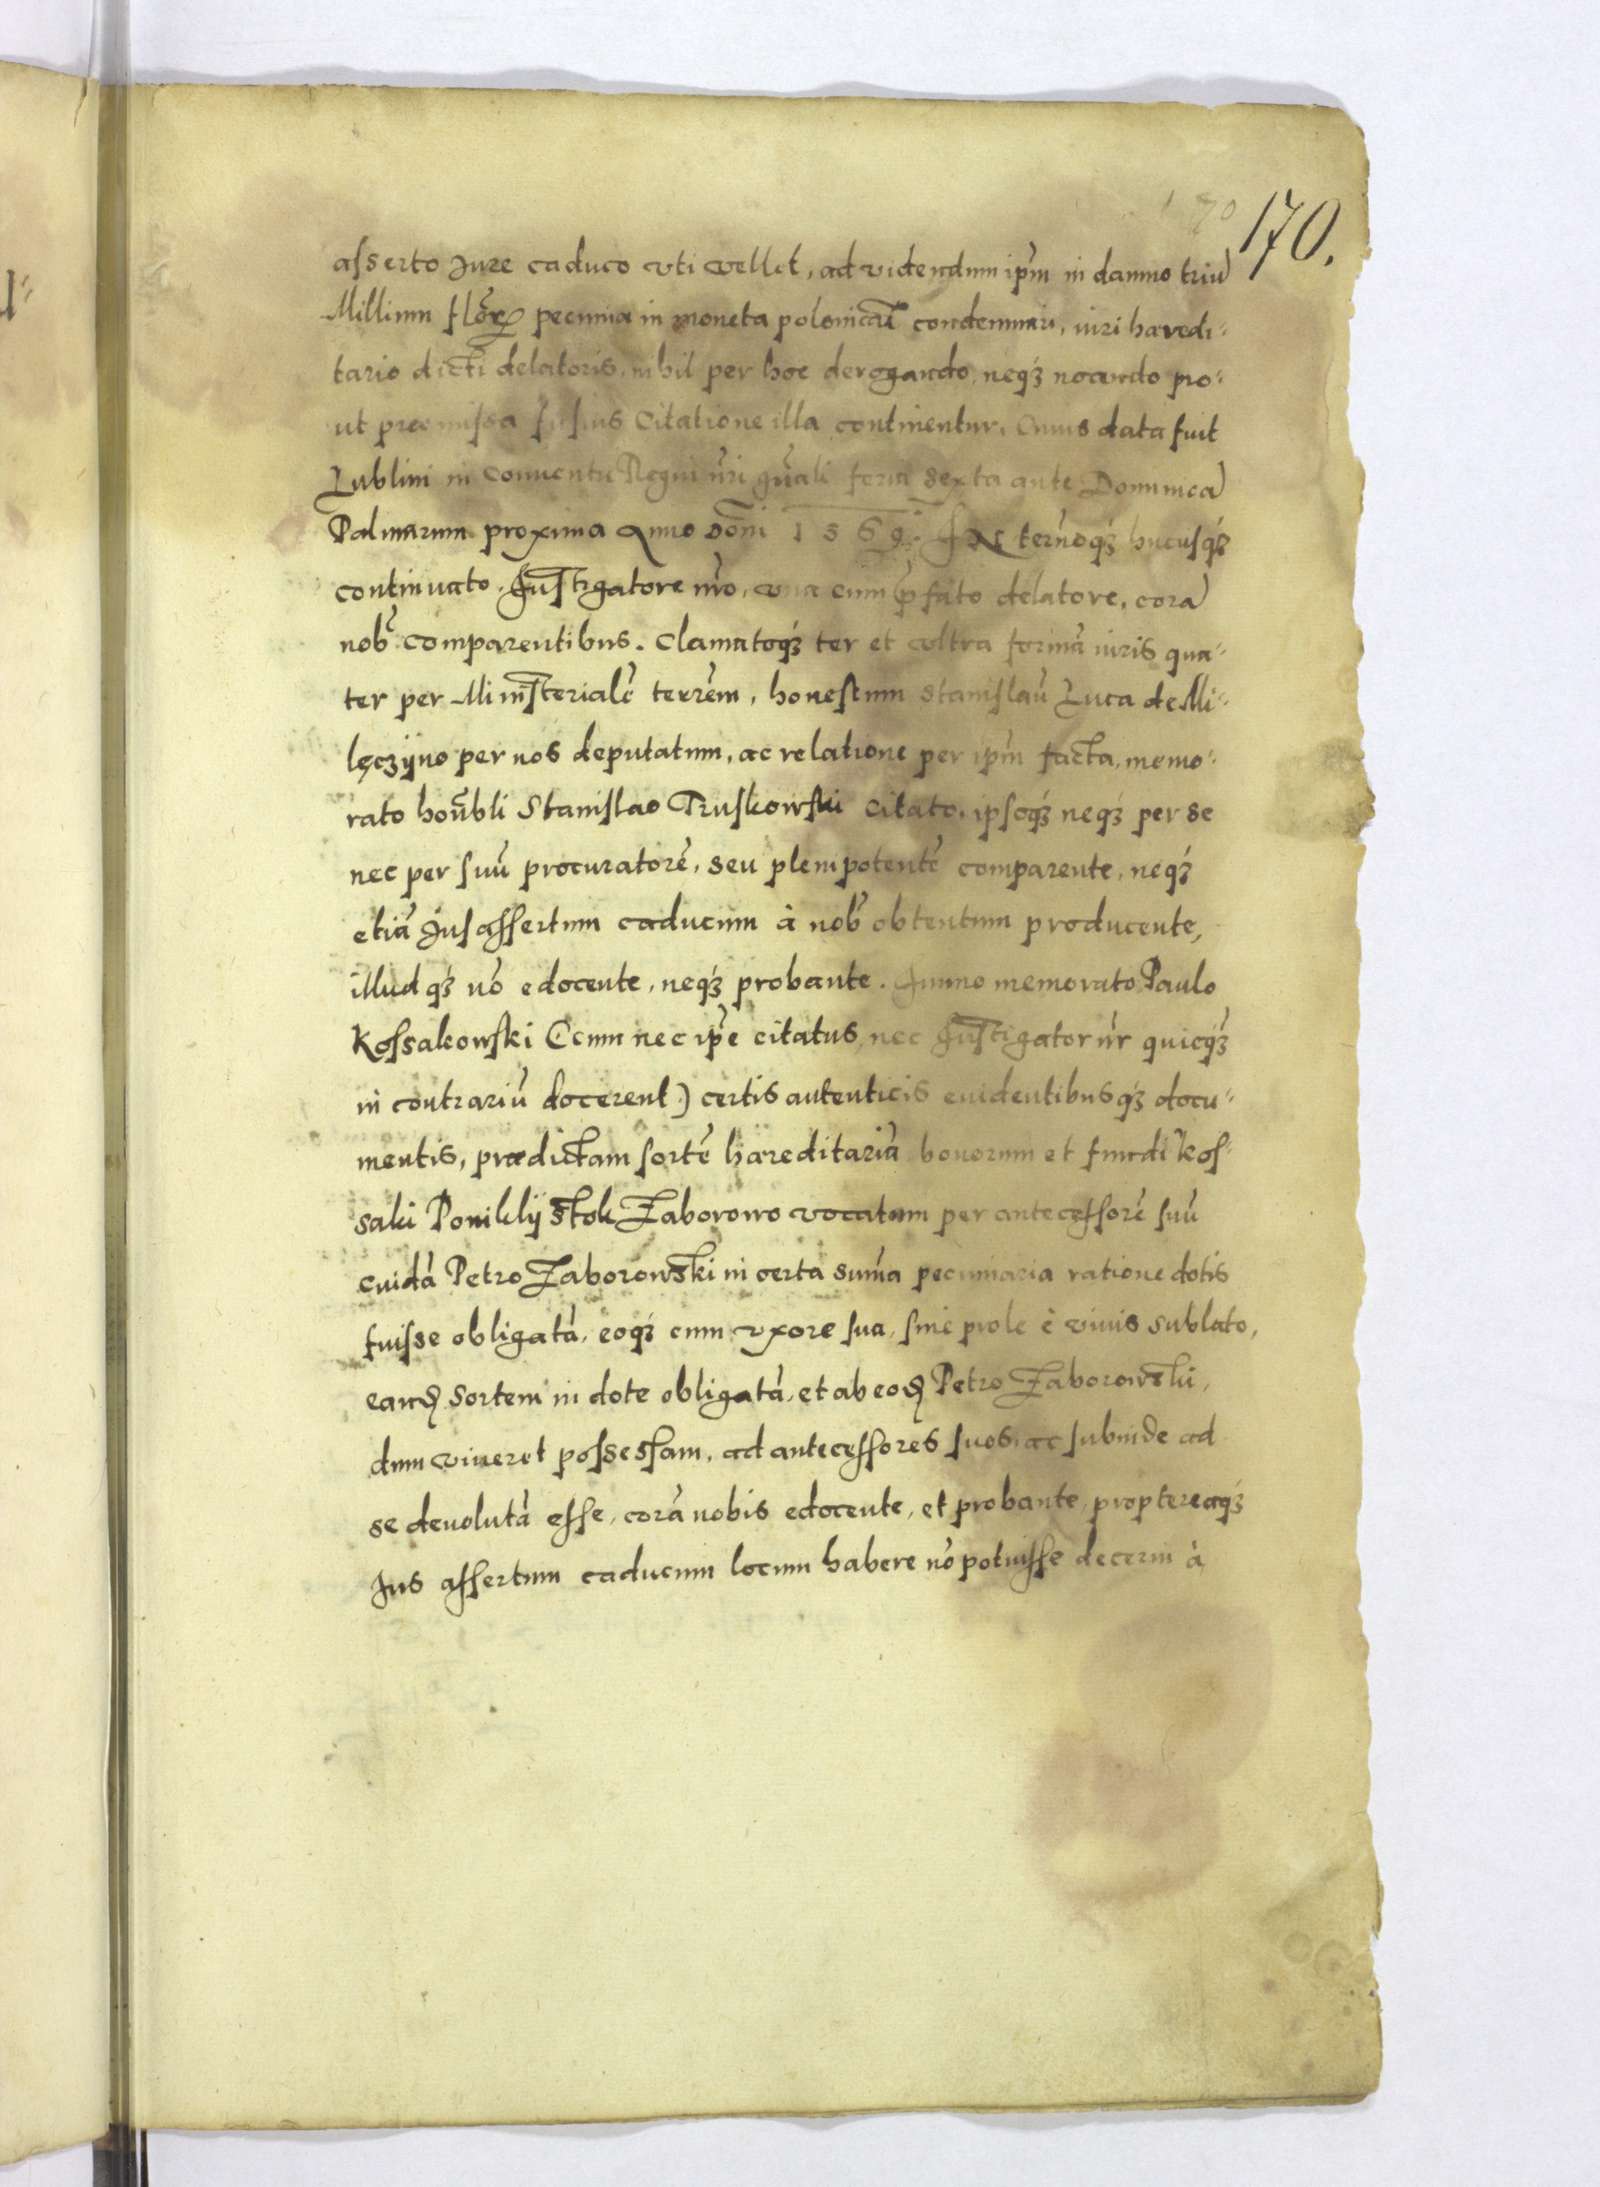 170 170.
asserto Jure caduco vti vellet, ad videndum ip̃m in damno triũ
Millium florῶ pecunia in moneta polonicãl condemnari, iuri haredi-
tario dicti delatoris, nihil per hoc derogando, neqꝫ nocendo pro-
ut præmissa fusius Citatione illa continentur, Cuius data fuit
Lublini in Conuentu Regni nr̃i gñali feria sexta ante Dominicã
Palmarum proxima Anno Doñi 1569. ternoqꝫ hucusqꝫ
continuato, Instigatore nr̃o, vna cum p̃fato delatore, corã
nob̃ comparentibus. Clamatoqꝫ ter et vltra formã iuris qua-
ter per Ministerialẽ terrẽm, honestum Stanislaũ Luca de Mi-
lęczijno per nos deputatum, ac relatione per ip̃m facta, memo-
rato hoñbli Stanislao Truskowski citato, ipsoqꝫ neqꝫ per se
nec per suũ procuratorẽ, seu plenipotentẽ comparente, neqꝫ
etiã Jus assertum caducum à nob̃ obtentum producente,
illudqꝫ nõ edocente, neqꝫ probante. Immo memorato Paulo
Kossakowski (cum nec ip̃e citatus, nec Instigator nr̃ quicqꝫ
in contrariũ docerent) certis autenticis euidentibusqꝫ docu-
mentis, prædictam sortẽ hæreditariã bonorum et fundi Kos-
saki Ponikly Stok Zaborowo vocatam per antecessorẽ suũ
cuidã Petro Zaborowski in certa sum̃a pecuniaria ratione dotis
fuisse obligatã, eoqꝫ cum vxore sua, sine prole è viuis sublato,
eandꝫ sortem in dote obligatã, et ab eodꝫ Petro Zaborowski,
dum viueret possessam, ad antecessores suos, ac subinde ad
se deuolutã esse, corã nobis edocente, et probante, proptereaqꝫ
Jus assertum caducum locum habere nõ potuisse decerni à